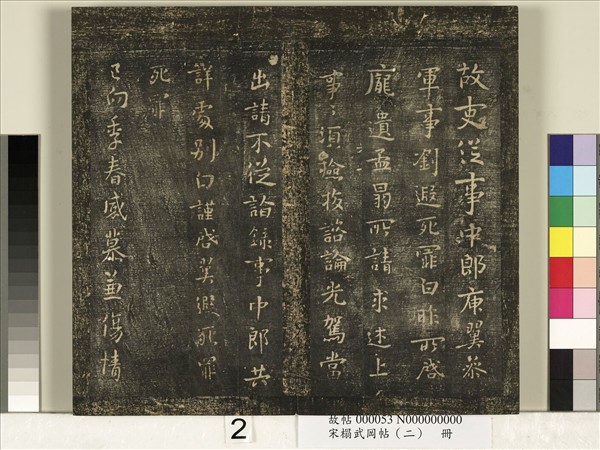 故吏從事中郎庾翼參
軍事劉遐死罪白昨所啓
龐遺孟昌所請求述上
事〻須檢校諮論光駕當
出請不從詣錄事中郎共
詳處別白謹啓翼遐死罪
死罪
已向季春感慕兼傷情
2
故帖 000053 N000000000
宋搨武岡帖（二） 冊